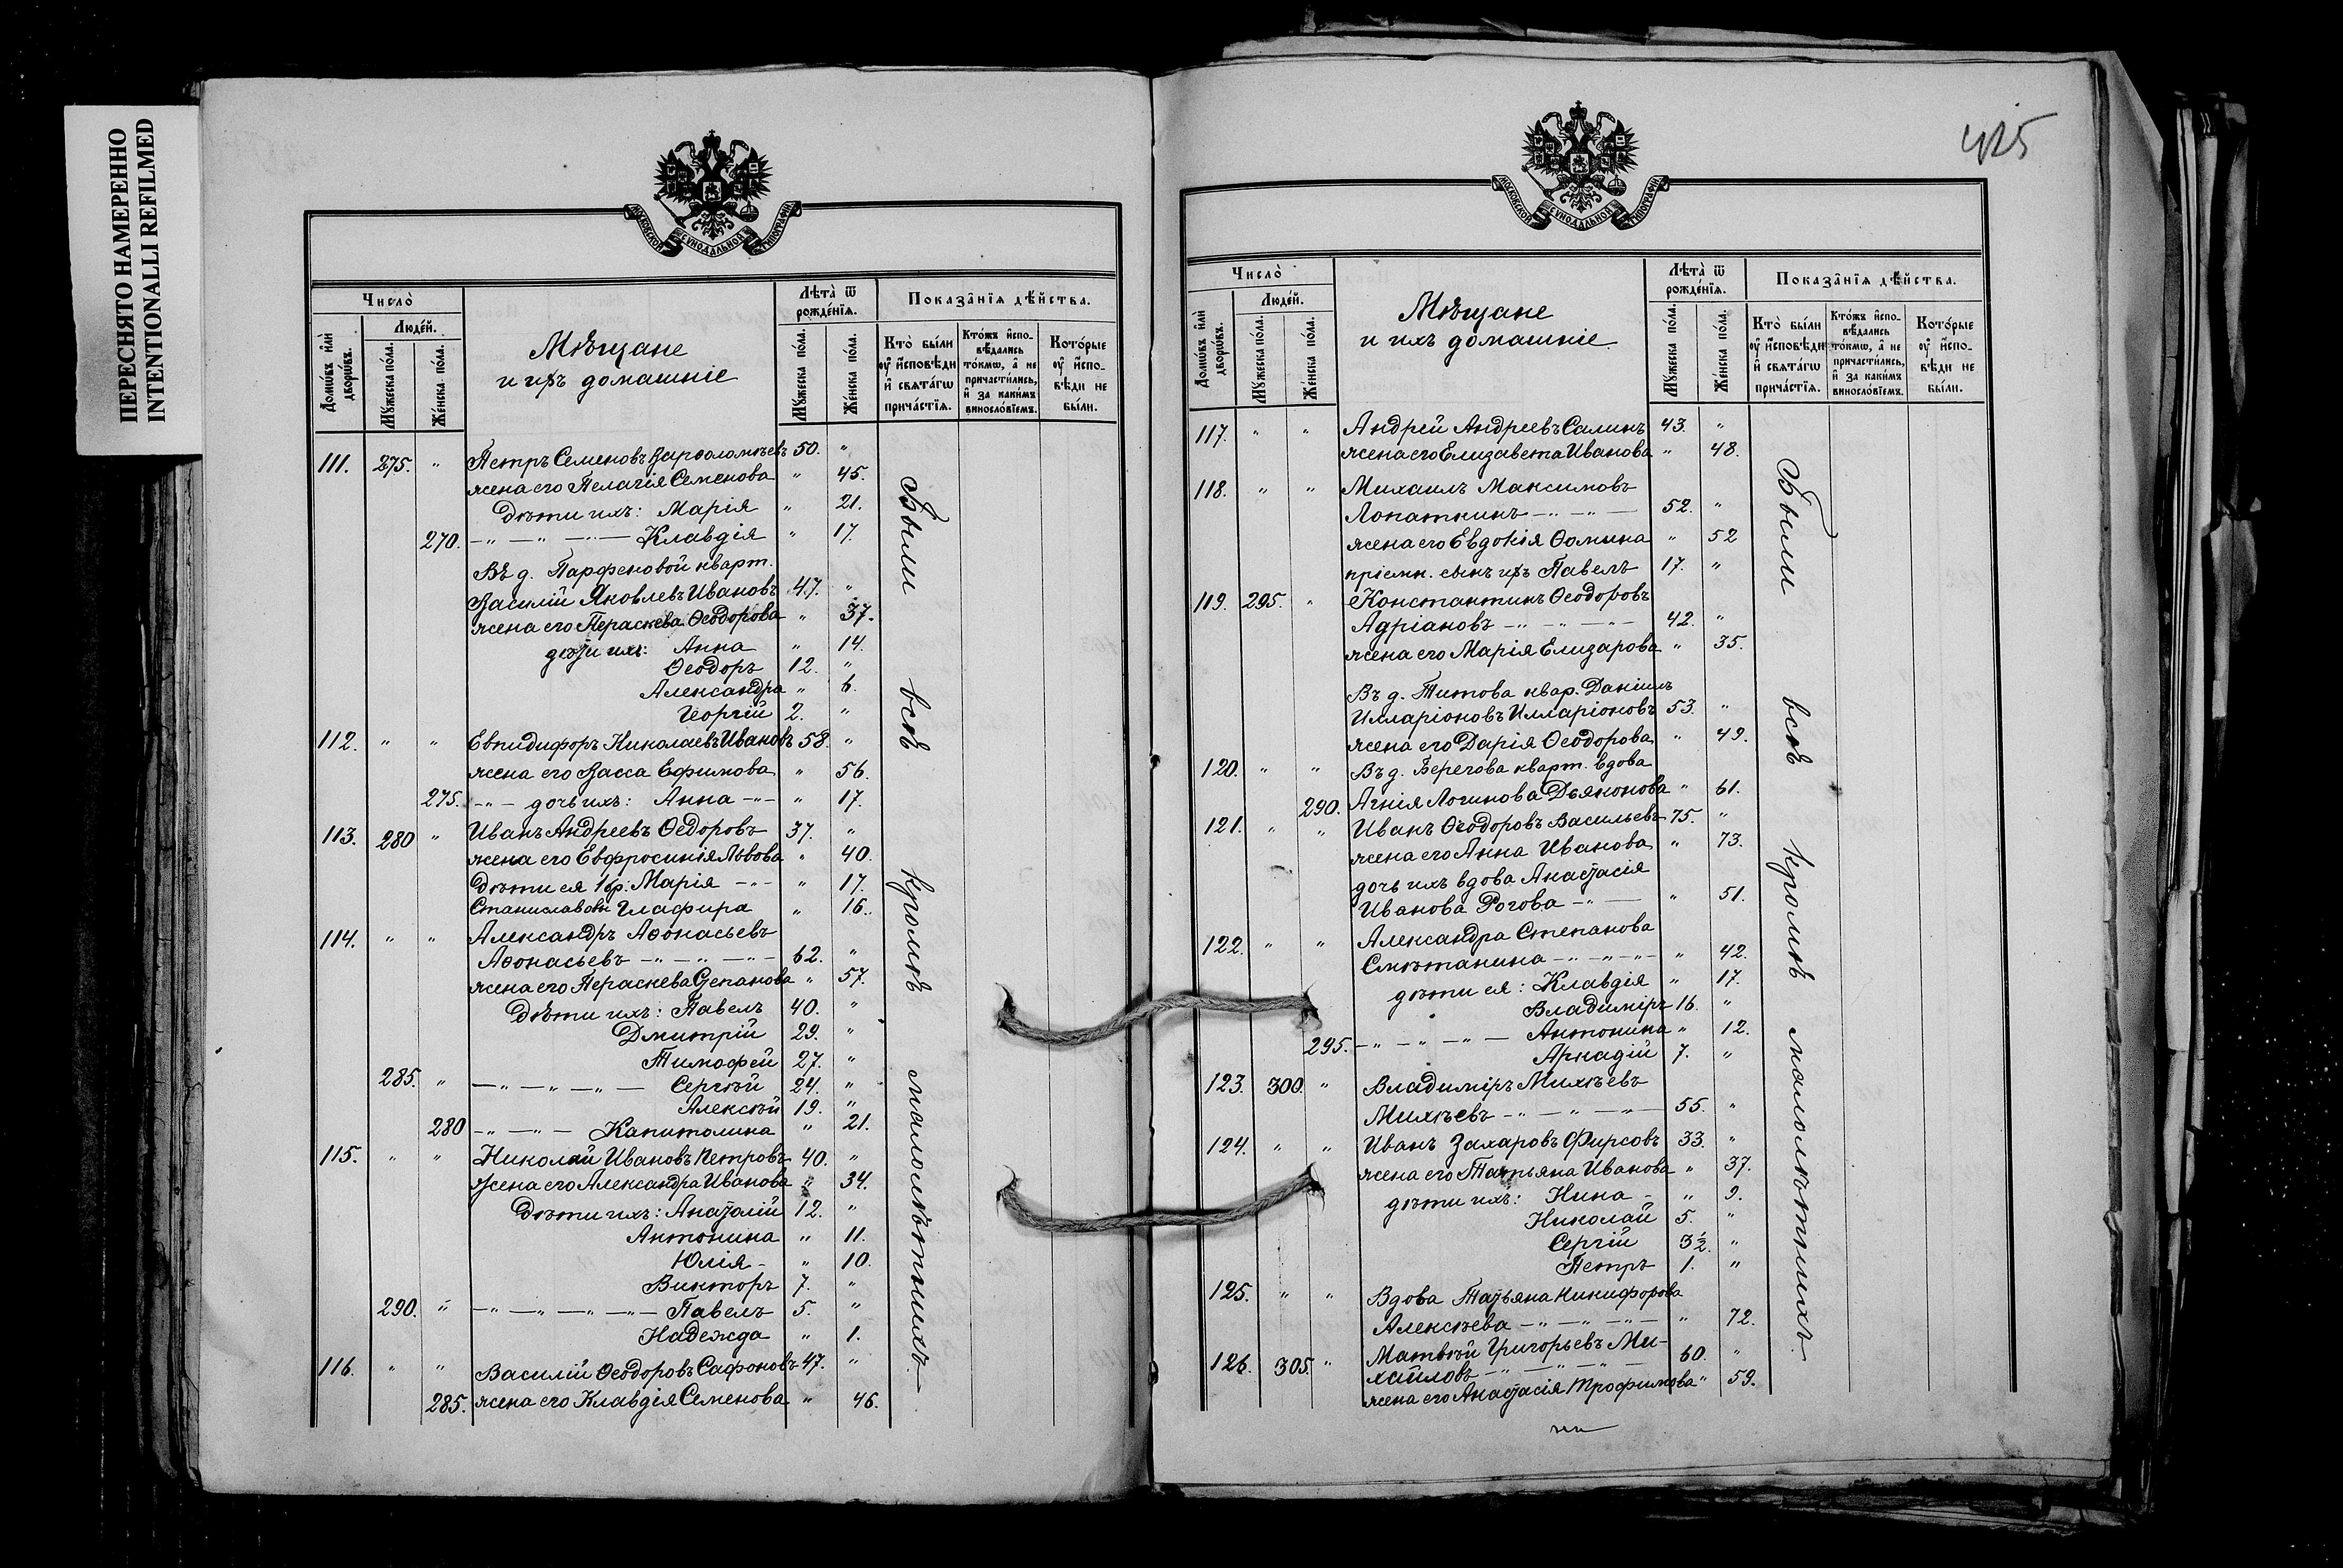 ПЕРЕСНЯТО НАМЕРЕННО
INTENTIONALLI REFILMED
МОСКОВСКОЙ СѴНОДАЛЬНОЙ ТИПОГРАФІИ
Число̀
Домѡ́въ и҆лѝ дворѡ́въ.
Люде́й.
Мꙋ́жеска по́ла.
Же́нска по́ла.
Мѣщане
и ихъ домашніе
Лѣта̀ ѿ рожде́нїѧ.
Мꙋ́жеска по́ла.
Же́нска по́ла.
Показа̑нїѧ дѣ́йства.
Кто̀ бы́ли ᲂу҆ и҆сповѣ́ди и҆ свѧта́гѡ прича́стїѧ.
Кто́жъ и҆спо-вѣ́дались то́кмѡ, а҆ не причасти́лись, и҆ за каки́мъ винословїемъ.
Кото́рые ᲂу҆ и҆спо-вѣ́ди не бы́ли.
111. 275. " Петръ Семеновъ Варѳоломѣевъ 50. "
жена его Пелагія Семенова " 45.
Дѣти ихъ: Марія " 21.
270. Клавдія " 17.
Въ д. Парфеновой кварт.
Василій Яковлевъ Ивановъ 47. "
жена его Параскева Ѳеодорова " 37.
дѣти ихъ: Анна " 14.
Ѳеодоръ 12. "
Александра " 6.
Георгій 2. "
112. " " Евпидифоръ Николаевъ Ивановъ 58. "
жена его Васса Ефимова " 56.
275. -"- дочь ихъ: Анна -"- " 17.
113. 280 " Иванъ Андреевъ Ѳедоровъ 37. "
жена его Евфросинія Львова " 40.
Дѣти ея 1 бр: Марія -"- " 17.
Станиславовы Глафира " 16.
114. " " Александръ Аѳонасьевъ
Аѳонасьевъ -"- -"- -"- 62. "
жена его Параскева Степанова " 57.
Дѣти ихъ: Павелъ 40. "
Дмитрій 29. "
Тимофей 27. "
285. " -"-"-"- Сергѣй 24. "
Алексѣй 19. "
280 -"-"- Капитолина " 21.
115. " " Николай Ивановъ Петровъ 40. "
Жена его Александра Иванова " 34.
Дѣти ихъ: Анатолій 12. "
Антонина " 11.
Юлія - " 10.
Викторъ 7. "
290. " -"-"-"-"- Павелъ 5. "
Надежда " 1.
116. " " Василій Ѳеодоровъ Сафоновъ 47. "
285. жена его Клавдія Семенова " 46.
Были всѣ кромѣ малолѣтнихъ.
425
МОСКОВСКОЙ СѴНОДАЛЬНОЙ ТИПОГРАФІИ
Число̀
Домѡ́въ и҆лѝ дворѡ́въ.
Люде́й.
Мꙋ́жеска по́ла.
Же́нска по́ла.
Мѣщане
и ихъ домашніе
Лѣта̀ ѿ рожде́нїѧ.
Мꙋ́жеска по́ла.
Же́нска по́ла.
Показа̑нїѧ дѣ́йства.
Кто̀ бы́ли ᲂу҆ и҆сповѣ́ди и҆ свѧта́гѡ прича́стїѧ.
Кто́жъ и҆спо-вѣ́дались то́кмѡ, а҆ не причасти́лись, и҆ за каки́мъ винословїемъ.
Кото́рые ᲂу҆ и҆спо-вѣ́ди не бы́ли.
117. " " Андрей Андреевъ Салинъ 43. "
жена его Елизавета Иванова " 48.
118. " " Михаилъ Максимовъ
Лопаткинъ -"- -"- 52. "
жена его Евдокія Ѳомина " 52
пріемн. сынъ ихъ Павелъ 17. "
119. 295. " Константинъ Ѳеодоровъ
Адріановъ -"- -"- -"- 42. "
жена его Марія Елизарова " 35.
Въ д. Титова квар. Даніилъ
Илларіоновъ Илларіоновъ 53. "
жена его Дарія Ѳеодорова " 49.
120. " " Въ д. Берегова кварт. вдова
290. Агнія Логинова Дьяконова " 61.
121. " " Иванъ Ѳеодоровъ Васильевъ 75. "
жена его Анна Иванова " 73.
дочь ихъ вдова Анастасія
Иванова Рогова -"- " 51.
122. " " Александра Степанова
Смѣтанина -"-"-"- " 42.
дѣти ея: Клавдія " 17.
Владиміръ 16. "
295. -"-"-"- Антонина " 12.
Аркадій 7. "
123. 300. " Владиміръ Михѣевъ
Михѣевъ -"-"-"- 55. "
124. " " Иванъ Захаровъ Фирсовъ 33. "
жена его Татьяна Иванова " 37.
дѣти ихъ: Нина - " 9.
Николай 5. "
Сергій 3½. "
Петръ 1. "
125. " " Вдова Татьяна Никифорова
Алексѣева -"-"-"- " 72.
126. 305. " Матвѣй Григорьевъ Ми-
хайловъ -"-"-"- 60. "
жена его Анастасія Трофимова " 59.
Были всѣ кромѣ малолѣтнихъ.